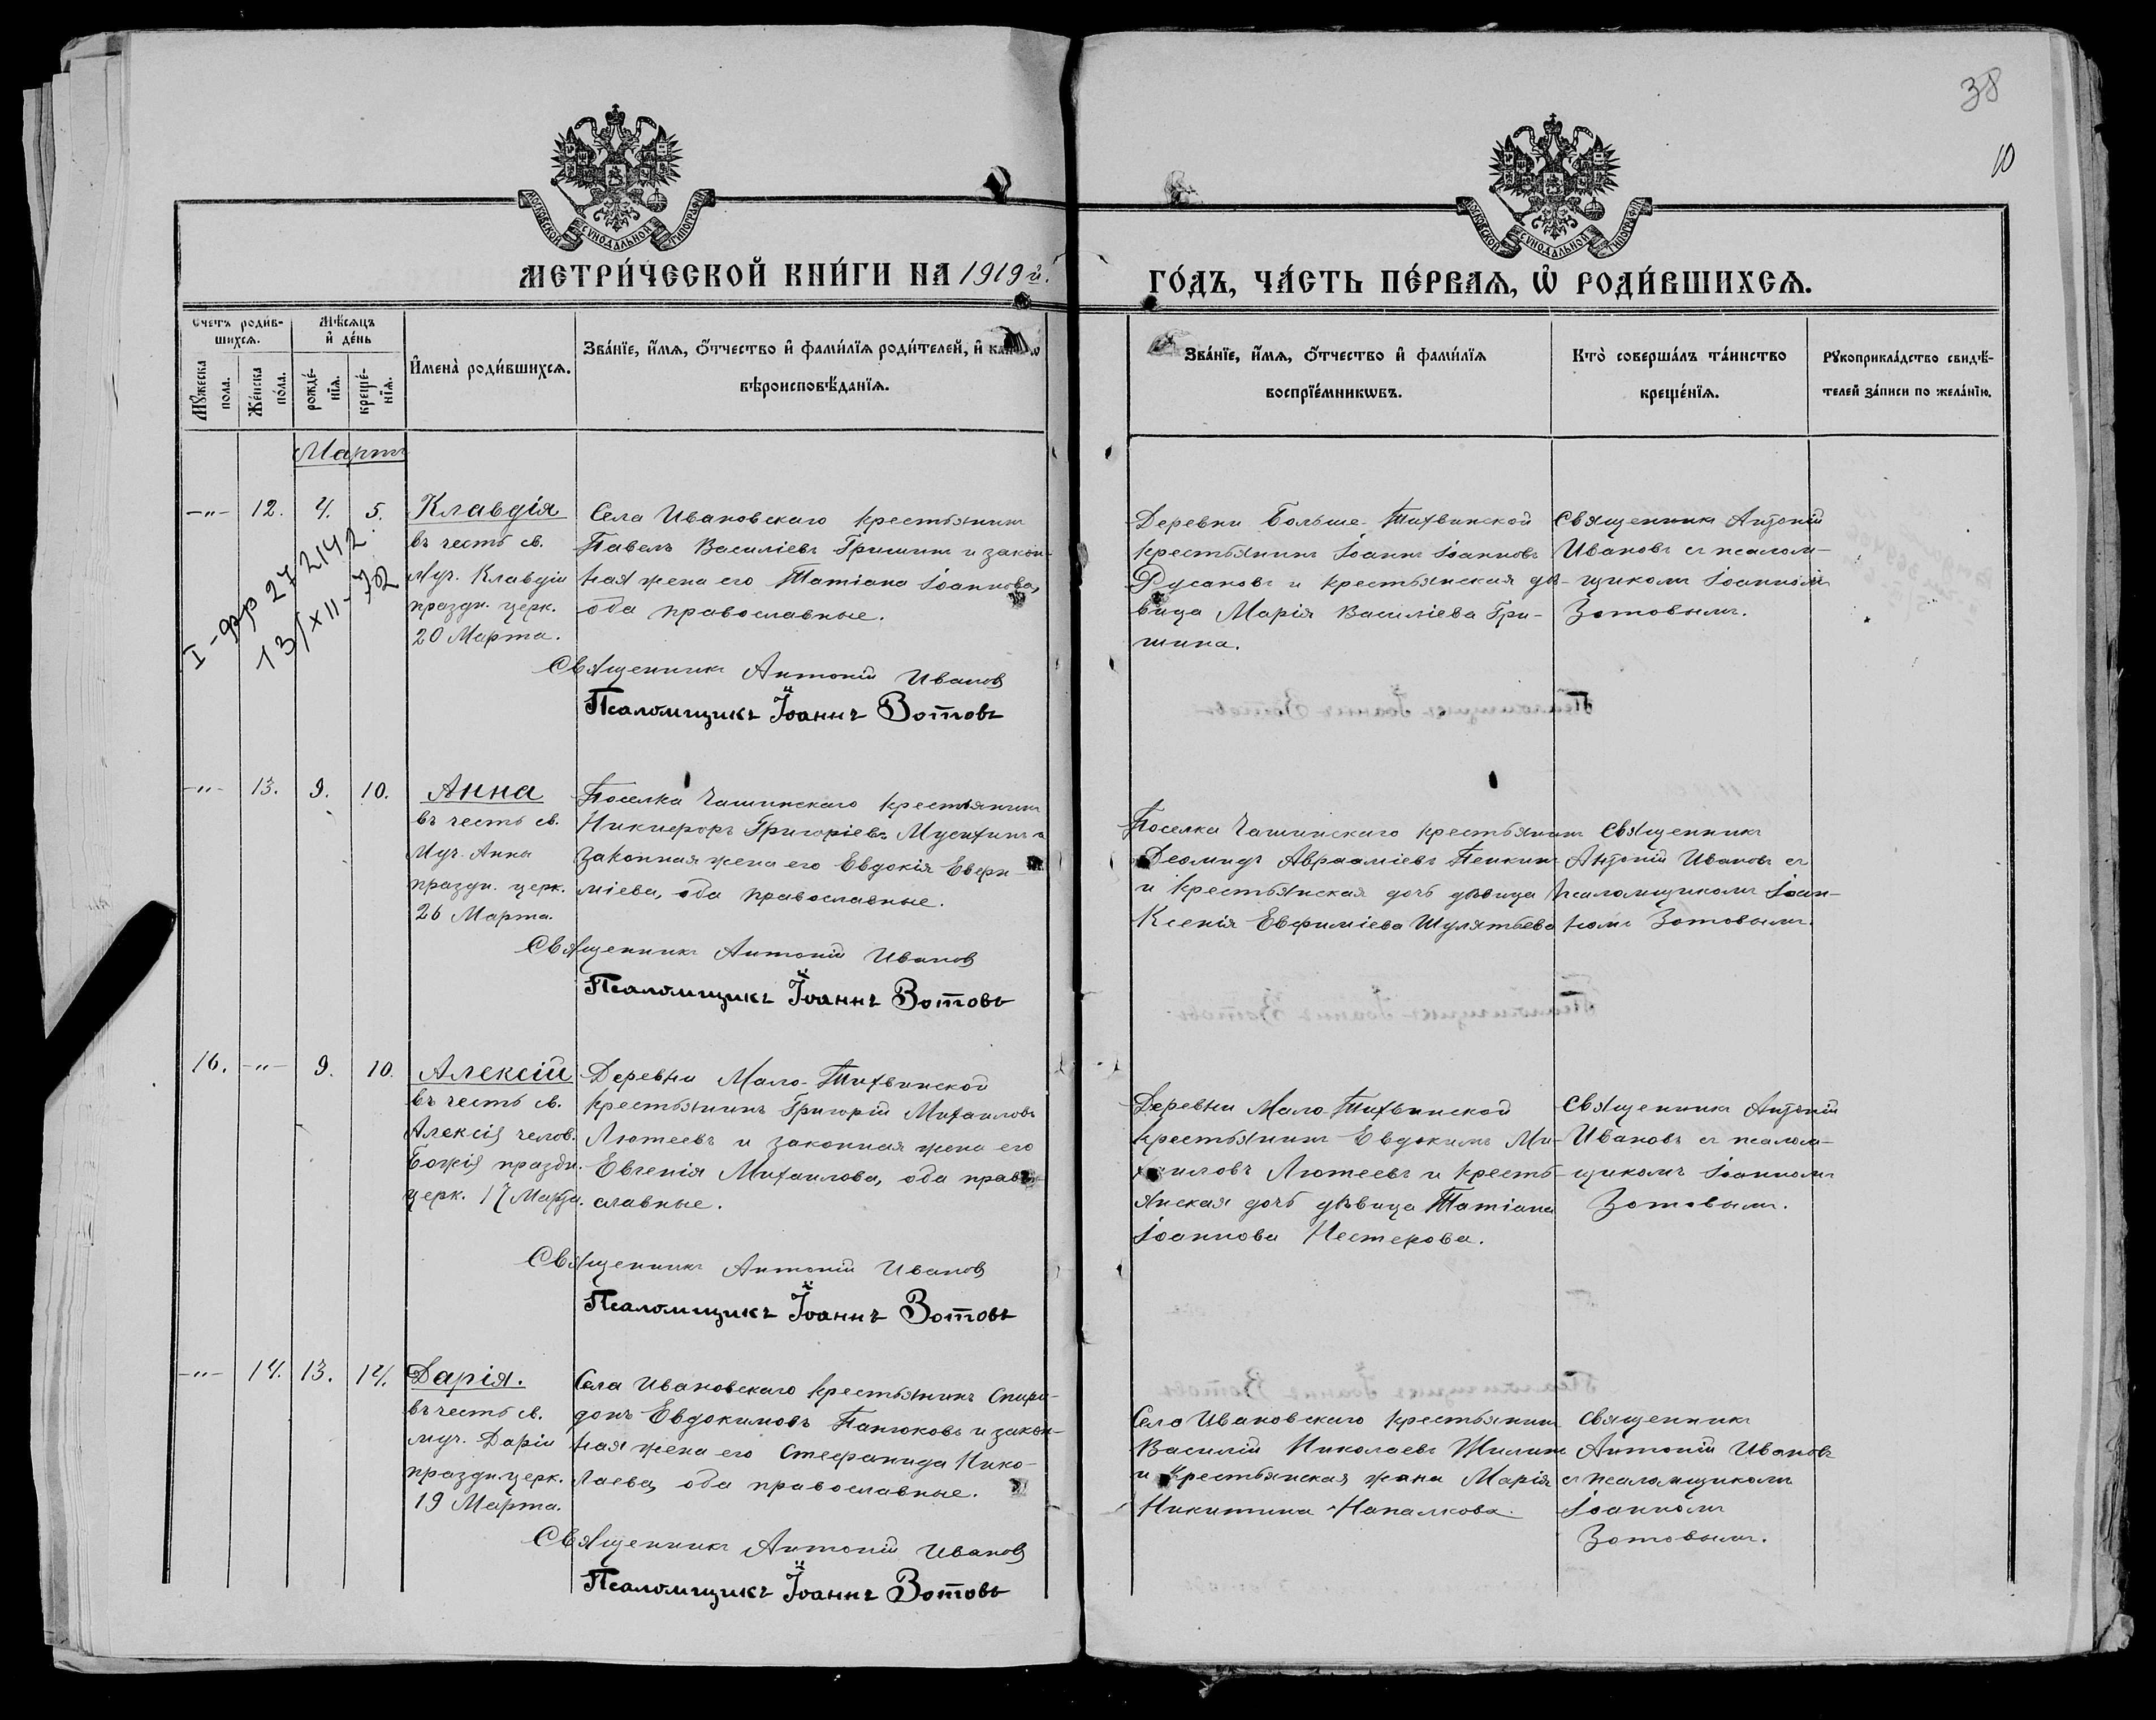 38
10
МОСКОВСКОЙ СѴНОДАЛЬНОЙ ТИПОГРАФІИ
МОСКОВСКОЙ СѴНОДАЛЬНОЙ ТИПОГРАФІИ
МЕТРИ́ЧЕСКОЙ КНИ́ГИ НА 1919 й.
ГО́ДЪ, ЧА́СТЬ ПЕ́РВАѦ, Ѽ РОДИ́ВШИХСѦ.
Счетъ роди́в-
шихсѧ.
Мꙋжеска пола.
Же́нска по́ла.
Мѣ́сѧцъ и҆ де́нь
рожде́-нїѧ.
креще́-нїѧ.
И҆мена̀ роди́вшихсѧ.
Зва́нїе, и҆́мѧ, ѻ҆́тчество и҆ фами́лїѧ роди́телей, и҆
вѣроисповѣ́данїѧ.
Зва́нїе, и҆́мѧ, ѻ҆́тчество и҆ фами́лїѧ
воспрїе́мникѡвъ.
Кто̀ соверша́лъ та́инство
креще́нїѧ.
Рꙋкоприкла́дство свидѣ́-
телей за́писи по жела́нїю.
Мартъ
-"- 12. 4. 5.
I-фр 272142
13/XII-72
Клавдія
въ честь св.
муч. Клавдіи
праздн. церк.
20 Марта.
Села Ивановскаго крестьянинъ
Павелъ Василіевъ Гришинъ и закон-
ная жена его Татіана Іоаннова,
оба православные.
Священникъ Антоній Ивановъ
Псаломщикъ Іоаннъ Зотовъ
Деревни Больше-Тихвинской
крестьянинъ Іоаннъ Іоанновъ
Русаковъ и крестьянская дѣ-
вица Марія Василіева Гри-
шина.
Священникъ Антоній
Ивановъ съ псалом-
щикомъ Іоанномъ
Зотовымъ.
-"- 13. 9. 10.
Анна
въ честь св.
Муч. Анны
праздн. церк.
26 Марта.
Поселка Чашинскаго крестьянинъ
Никифоръ Григоріевъ Мусихинъ и
законная жена его Евдокія Евфи-
міева, оба православные.
Священникъ Антоній Ивановъ
Псаломщикъ Іоаннъ Зотовъ
Поселка Чашинскаго крестьянинъ
Деомидъ Авраміевъ Пенкинъ
и крестьянская дочь дѣвица
Ксенія Евфиміева Шулятьева
Священникъ
Антоній Ивановъ съ
псаломщикомъ Іоан-
номъ Зотовымъ.
16. -"- 9. 10.
Алексій
въ честь св.
Алексія челов.
Божія праздн.
церк. 17 Марта.
Деревни Мало-Тихвинской
крестьянинъ Григорій Михаиловъ
Лютеевъ и законная жена его
Евгенія Михаилова, оба право-
славные.
Священникъ Антоній Ивановъ
Псаломщикъ Іоаннъ Зотовъ
Деревни Мало-Тихвинской
крестьянинъ Евдокимъ Ми-
хаиловъ Лютеевъ и кресть-
янская дочь дѣвица Татіана
Іоаннова Нестерова.
Священникъ Антоній
Ивановъ съ псалом-
щикомъ Іоанномъ
Зотовымъ.
-"- 14. 13. 14.
Дарія.
въ честь св.
муч. Даріи
праздн. церк.
19 Марта.
Села Ивановскаго крестьянинъ Спири-
донъ Евдокимовъ Панюковъ и закон-
ная жена его Стефанида Нико-
лаева, оба православные.
Священникъ Антоній Ивановъ
Псаломщикъ Іоаннъ Зотовъ
Села Ивановскаго крестьянинъ
Василій Николаевъ Жилинъ
и крестьянская жена Марія
Никитина Напалкова.
Священникъ
Антоній Ивановъ
съ псаломщикомъ
Іоанномъ
Зотовымъ.